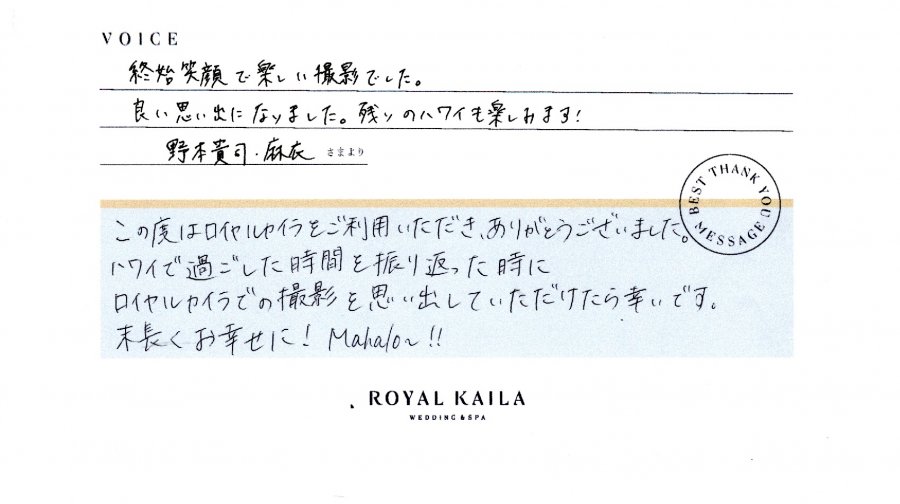 VOICE
終始笑顔で楽しい撮影でした。
良い思い出になりました。残りのハワイも楽しみます!
野本貴司・麻衣 さまより
BEST THANK YOU MESSAGE
この度はロイヤルカイラをご利用いただき、ありがとうございました。
ハワイで過ごした時間を振り返った時に
ロイヤルカイラでの撮影を思い出していただけたら幸いです。
末長くお幸せに! Mahalo~!!
ROYAL KAILA
WEDDING & SPA